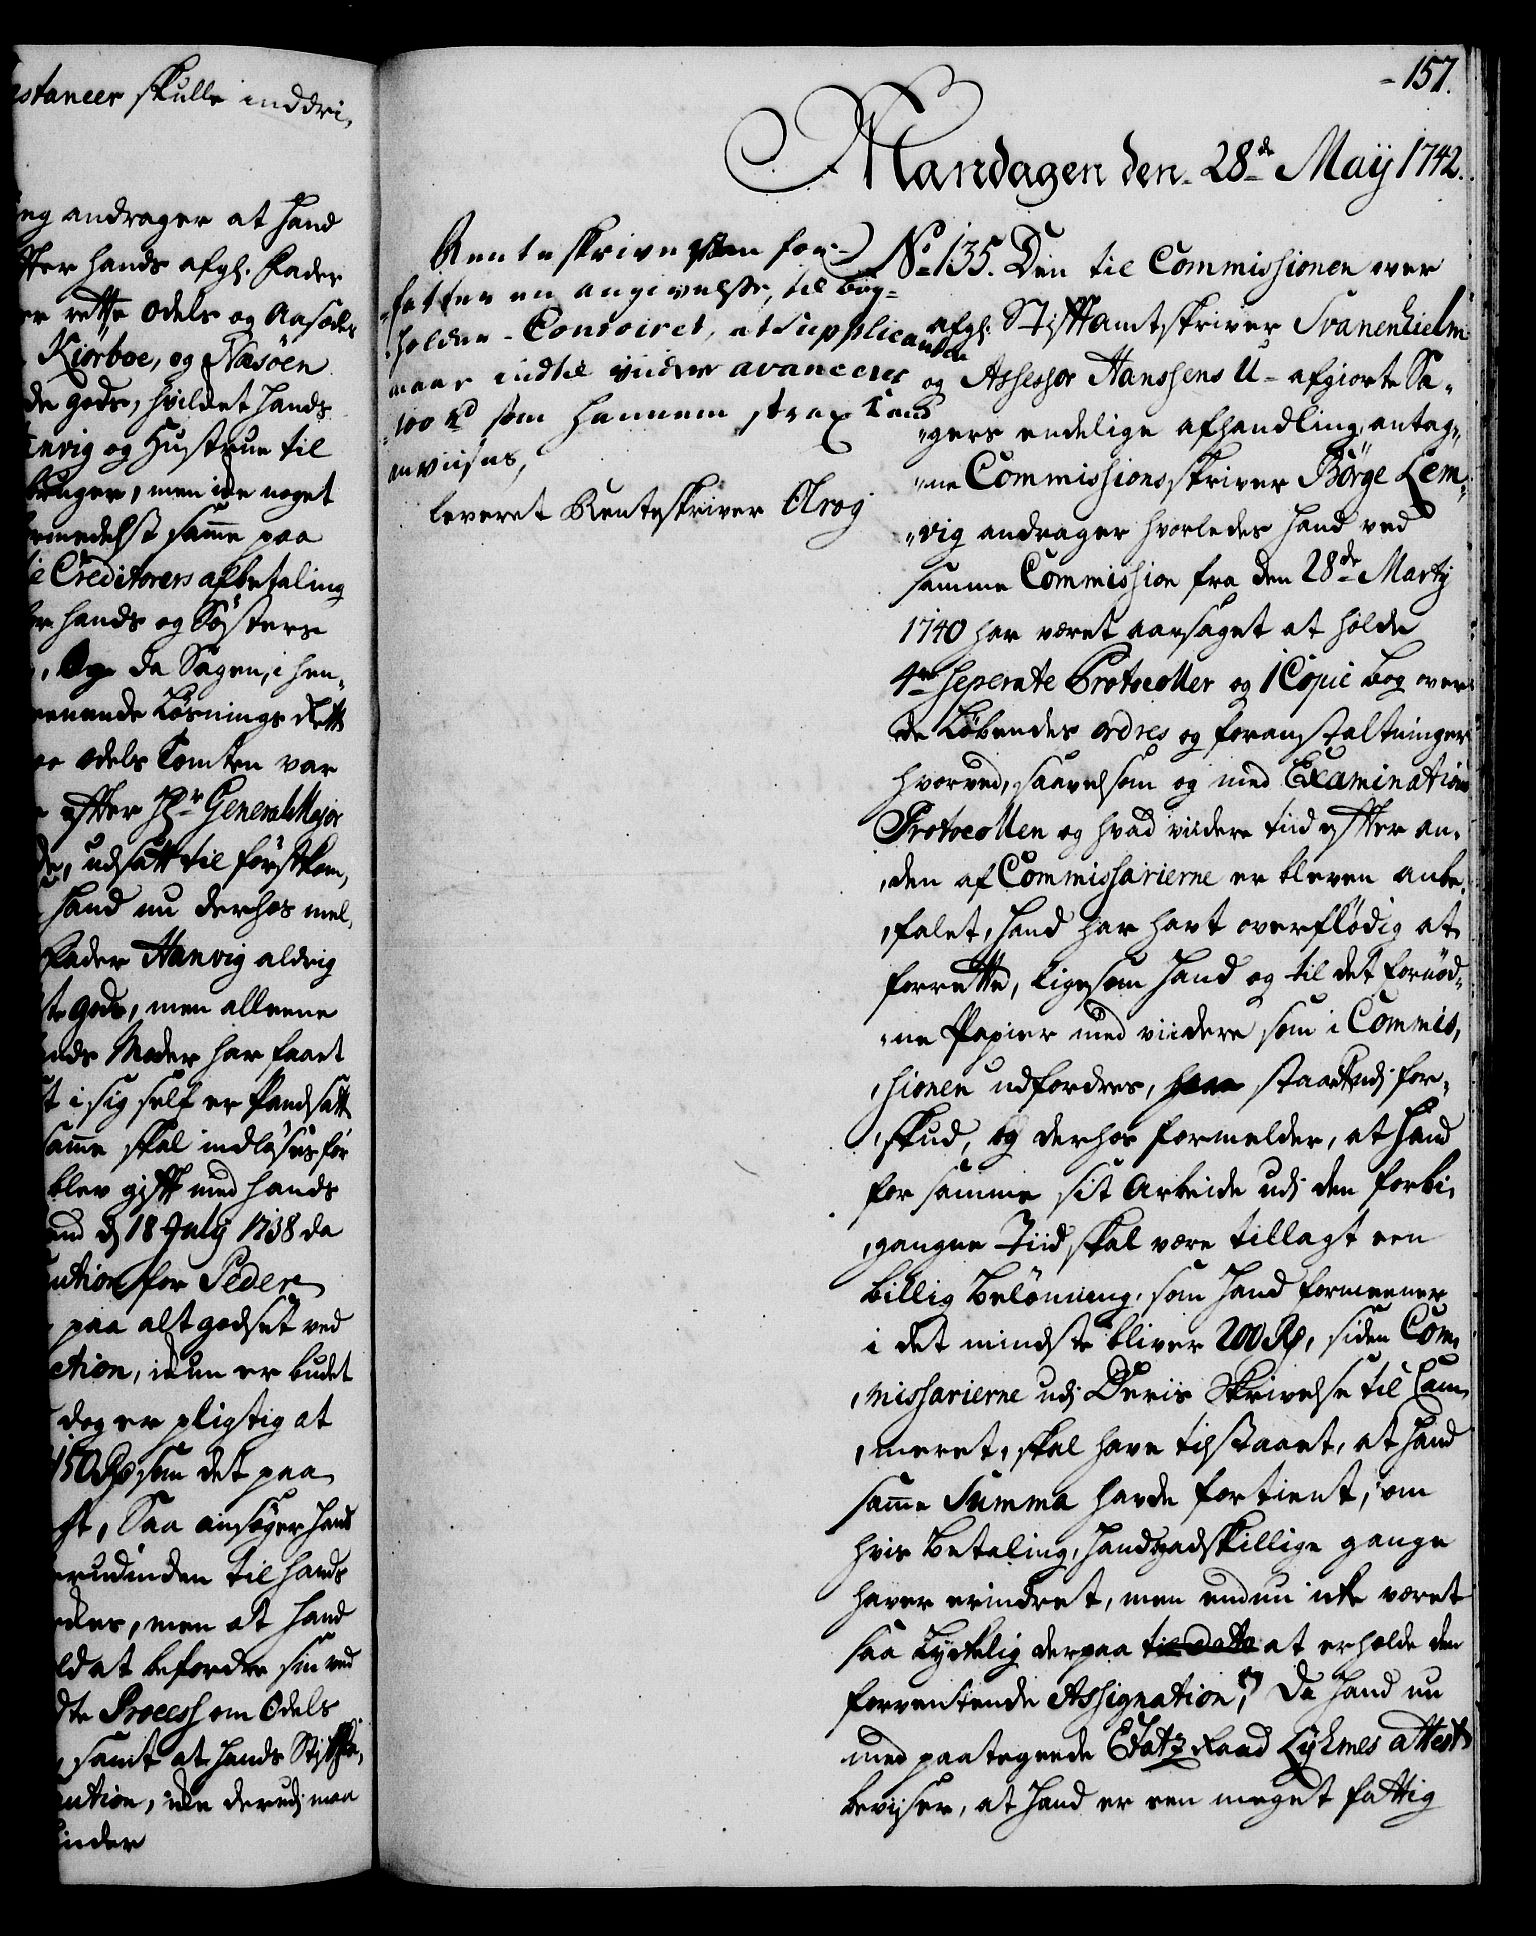 stancer skulle inddri,
ng andrager at Hand
fter hands afg: Fader
er rette odels og Aasædes
Kiørboe, og Næsöen
de gods, hvilket hands
anvig og Hustrue til
bruger, men icke noget
ormedelst samme paa
e Creditorers afbetaling
for hands og Søsters
, Og da Sagen, i hen,
eenende Løsnings Rett
odels Tomten var
efter Hr General Major
de, udsatt til førstkom,
Hand nu derhos mel,
Fader Hanvig aldrig
te gods, men alleene
nds Moder har faaet
t i sig self er Pandsatt
samme skal indløses for
blev gift med hands
and d 18 July 1738 da
ution for Peder
paa alt godset ved
ction, ickun er budet
dog er pligtig at
150 Rd som det paa
ft, Saa ansøger Hand
erudinden til hands
edes, men at Hand
ld at befordre sin ved
dte Process om Odels
samt at hands Stiffa,
ution, icke derudj maa
inder
157.
Mandagen den 28de Maij 1742.
Renteskriveren for-
fatter en angivelse, til Bog-
holder-Contoiret, at Supplicanten
maae indtil viidere avanceres
100 rd som hannem strax kand
anviises,
leveret Renteskriver Olrog
No 135. Den til Commissionen over
afg: Stiftamtskriver Svanenhielm
og Assessor Hanssens U-afgiorte Sa-
gers endelige afhandling, antag-
ne Commissionsskriver Börge Lem-
vig andrager hvorledes Hand ved
samme Commission fra den 28de Martij
1740 har været aarsaget at holde
4re seperate Protocoller og 1 Copie bog over
de Løbendes ordres og foranstaltninger
hvorved, saavelsom og med Examinations
Protocollen og hvad viidere tiid efter an-
den af Commissarierne er bleven anbe-
falet, Hand har havt overflödig at
forrette, ligesom Hand og til det fornöd-
ne Papier med viidere som i Commis-
sionen udfordres, staaet udj for-
skud, og derhos formelder, at Hand
for samme sit Arbeide udj den forbi-
gangne Tiid skal være tillagt een
billig Belönning, som Hand formeener
i det mindste bliver 200 Rd, siden Com-
missarierne udj Deris Skrivelse til Cam-
meret, skal have tilstaaet, at Hand
samme Summa havde fortient, om
hvis Betaling, Hand adskillige gange
haver erindret, men endnu icke været
saa Lyckelig derpaa til Dato at erholde den
forventende Assignation, Da Hand nu
med paategnede Etatz Raad Lyhmes attest
beviser, at Hand er een meget fattig